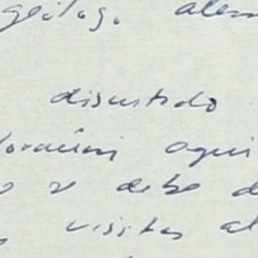 geólogo alem
discutido
loración aqui
o y debo d
visitas al